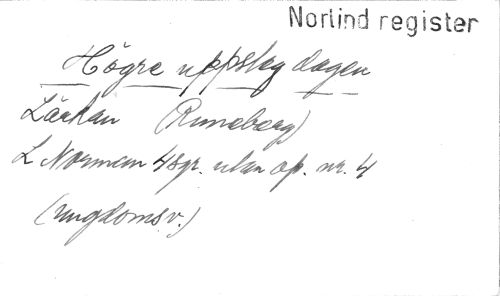 Norlind register
Högre uppsteg dagen
Lärkan (Runeberg)
L Norman 4 sgr. utan op. nr. 4
(ungdomsv.)